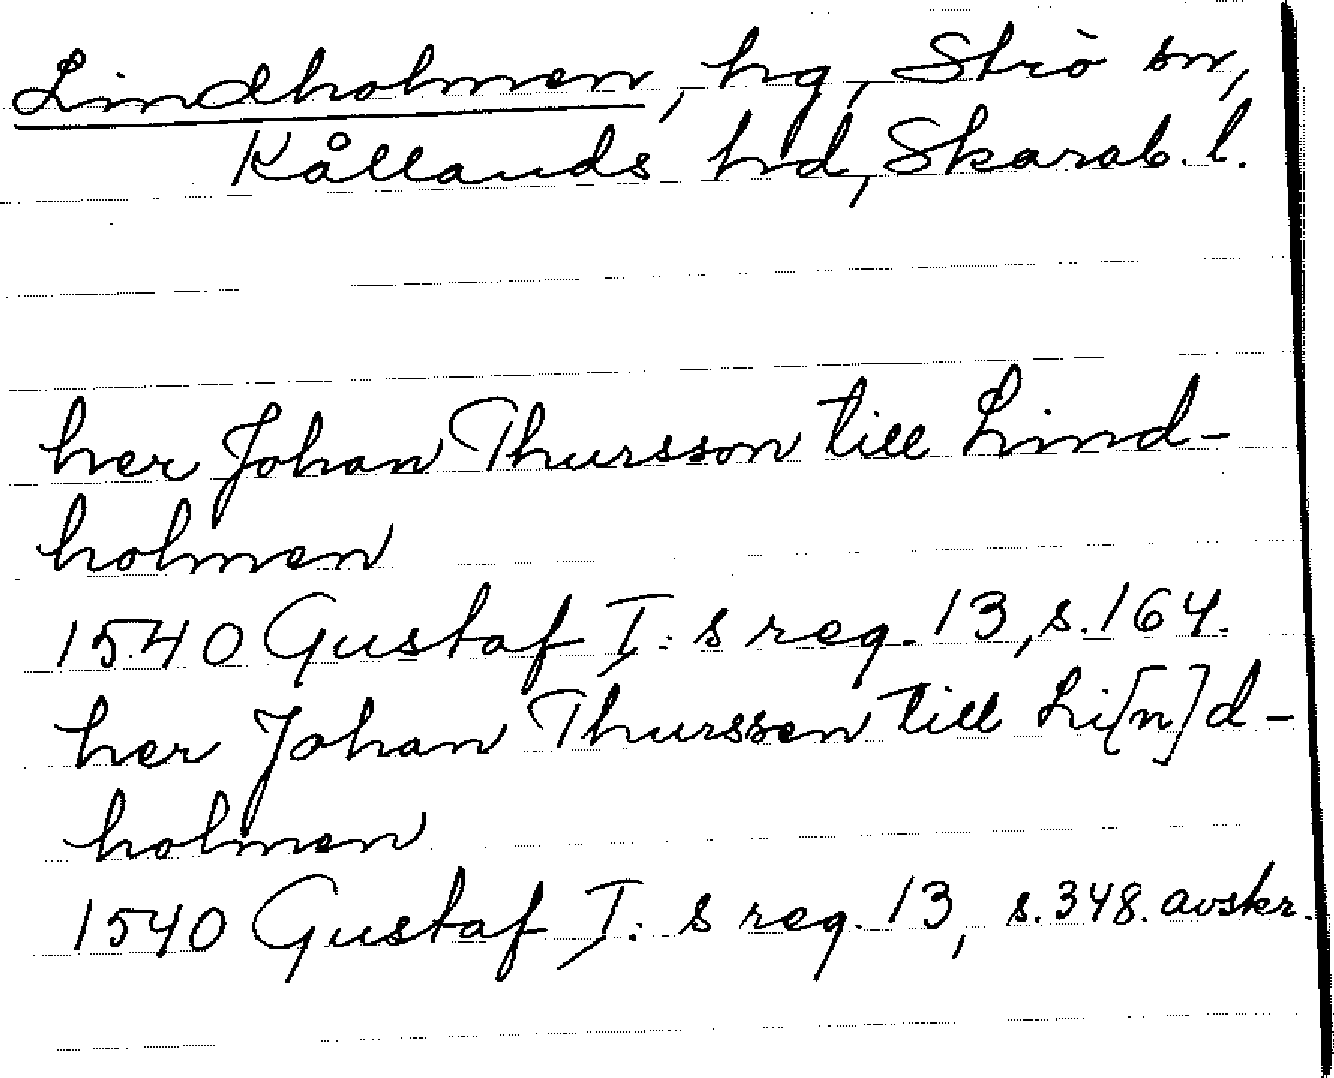 Lindholmen, hg, Strö sn,
Kållands hd, Skarab. l.
her Johan Thursson till Lind-
holmen
1540 Gustaf I: s reg. 13, s. 164.
her Johan Thurssen till Li[n]d-
holmen
1540 Gustaf I: s reg. 13, s. 348. avskr.